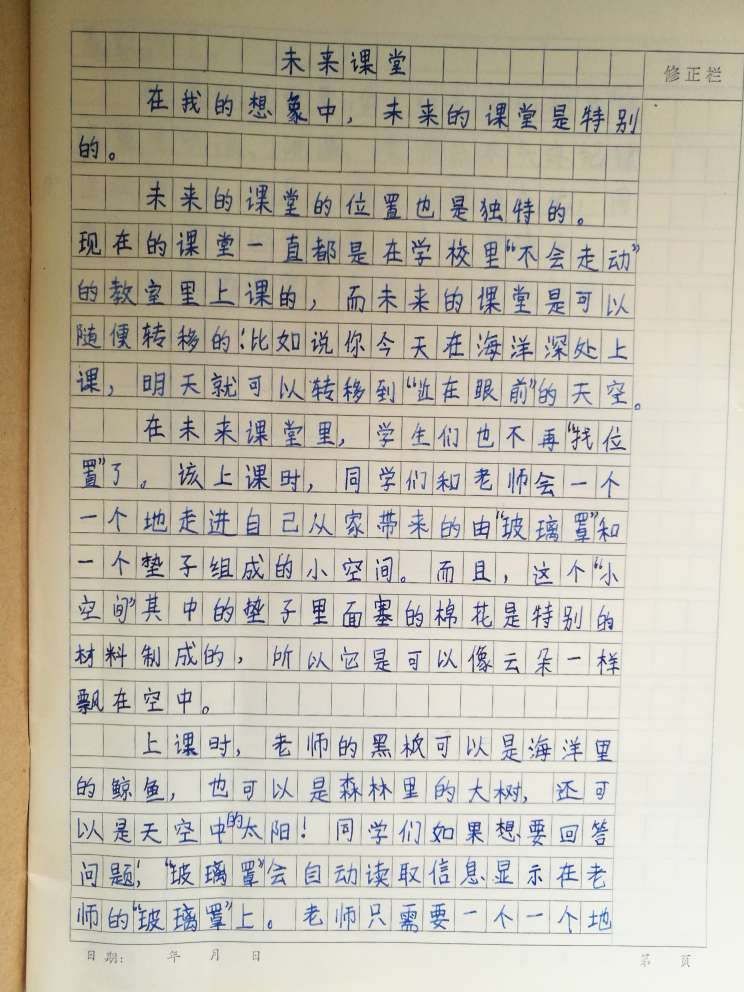 未来课堂
修正栏
在我的想象中，未来的课堂是特别
的。
未来的课堂的位置也是独特的。
现在的课堂一直都是在学校里“不会走动”
的教室里上课的，而未来的课堂是可以
随便转移的！比如说你今天在海洋深处上
课，明天就可以转移到“近在眼前”的天空。
在未来课堂里，学生们也不再“找位
置”了。该上课时，同学们和老师会一个
一个地走进自己从家带来的由“玻璃罩”和
一个垫子组成的小空间。而且，这个“小
空间”其中的垫子里面塞的棉花是特别的
材料制成的，所以它是可以像云朵一样
飘在空中。
上课时，老师的黑板可以是海洋里
的鲸鱼，也可以是森林里的大树，还可
以是天空中的太阳！同学们如果想要回答
问题，“玻璃罩”会自动读取信息显示在老
师的“玻璃罩”上。老师只需要一个一个地
日期： 年 月 日
第 页